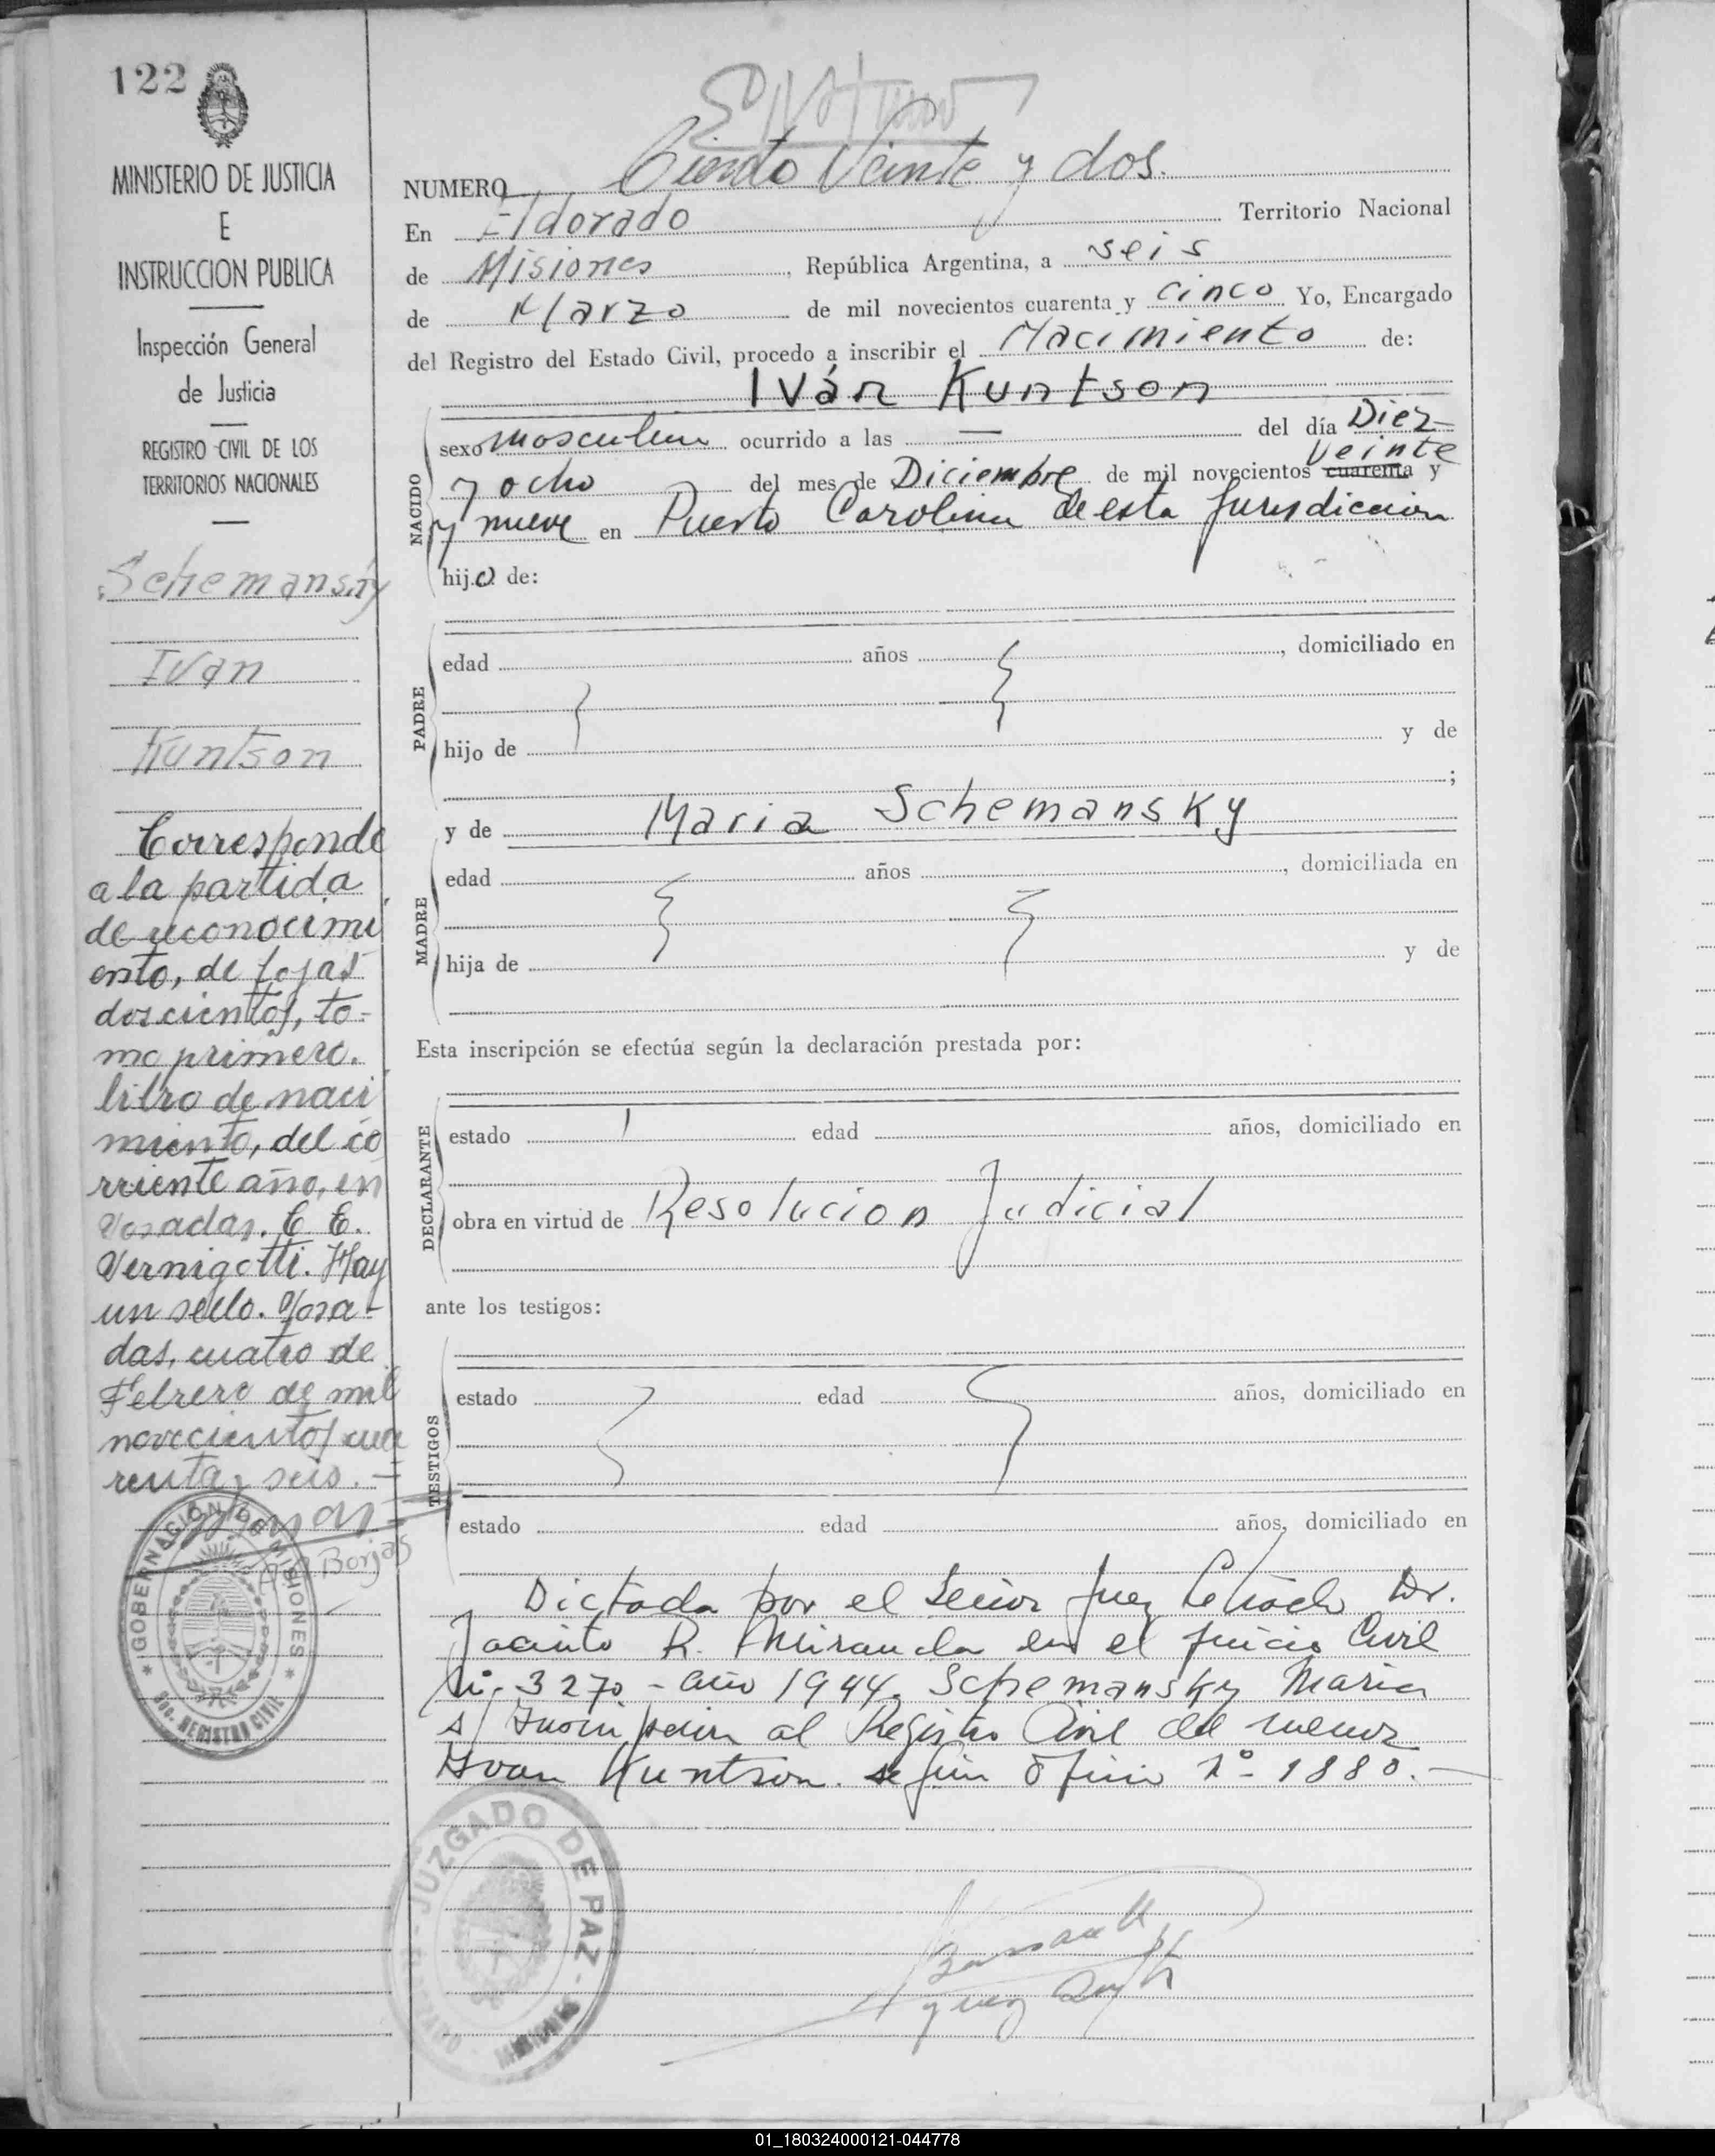 122
MINISTERIO DE JUSTICIA
E
INSTRUCCION PUBLICA
Inspección General
de Justicia
REGISTRO CIVIL DE LOS
TERRITORIOS NACIONALES
Schemansky
Ivan
Kuntson
Corresponde
a la partida
de reconocimi
ento, de fojas
doscientos, to-
mo primero.
libro de naci
miento, del co
rriente año, en
Posadas. E. E.
Vernigotti. Hay
un sello. Posa-
das, cuatro de
Febrero de mil
novecientos cua
renta y seis. -
Borjas
GOBERNACIÓN DE MISIONES
REGISTRO CIVIL
NUMERO Ciento Veinte y dos.
En Eldorado Territorio Nacional
de Misiones, República Argentina, a seis
de Marzo de mil novecientos cuarenta y cinco Yo, Encargado
del Registro del Estado Civil, procedo a inscribir el Nacimiento de:
Iván Kuntson
NACIDO
sexo masculino ocurrido a las — del día Diez
veinte
y ocho del mes de Diciembre de mil novecientos cuarenta y
y nueve en Puerto Carolina de esta Jurisdiccion
hijo de:
PADRE
edad años, domiciliado en
hijo de y de
;
MADRE
y de Maria Schemansky
edad años, domiciliada en
hija de y de
Esta inscripción se efectúa según la declaración prestada por:
DECLARANTE
estado edad años, domiciliado en
obra en virtud de Resolucion Judicial
ante los testigos:
TESTIGOS
estado edad años, domiciliado en
estado edad años, domiciliado en
Dictada por el Señor Juez Letrado Dr.
Jacinto R. Miranda en el juicio Civil
Nº 3270 - año 1944. Schemansky Maria
s/ Inscripcion al Registro Civil del menor
Ivan Kuntson. según Oficio nº 1880. —
JUZGADO DE PAZ - MISIONES
01_180324000121-044778